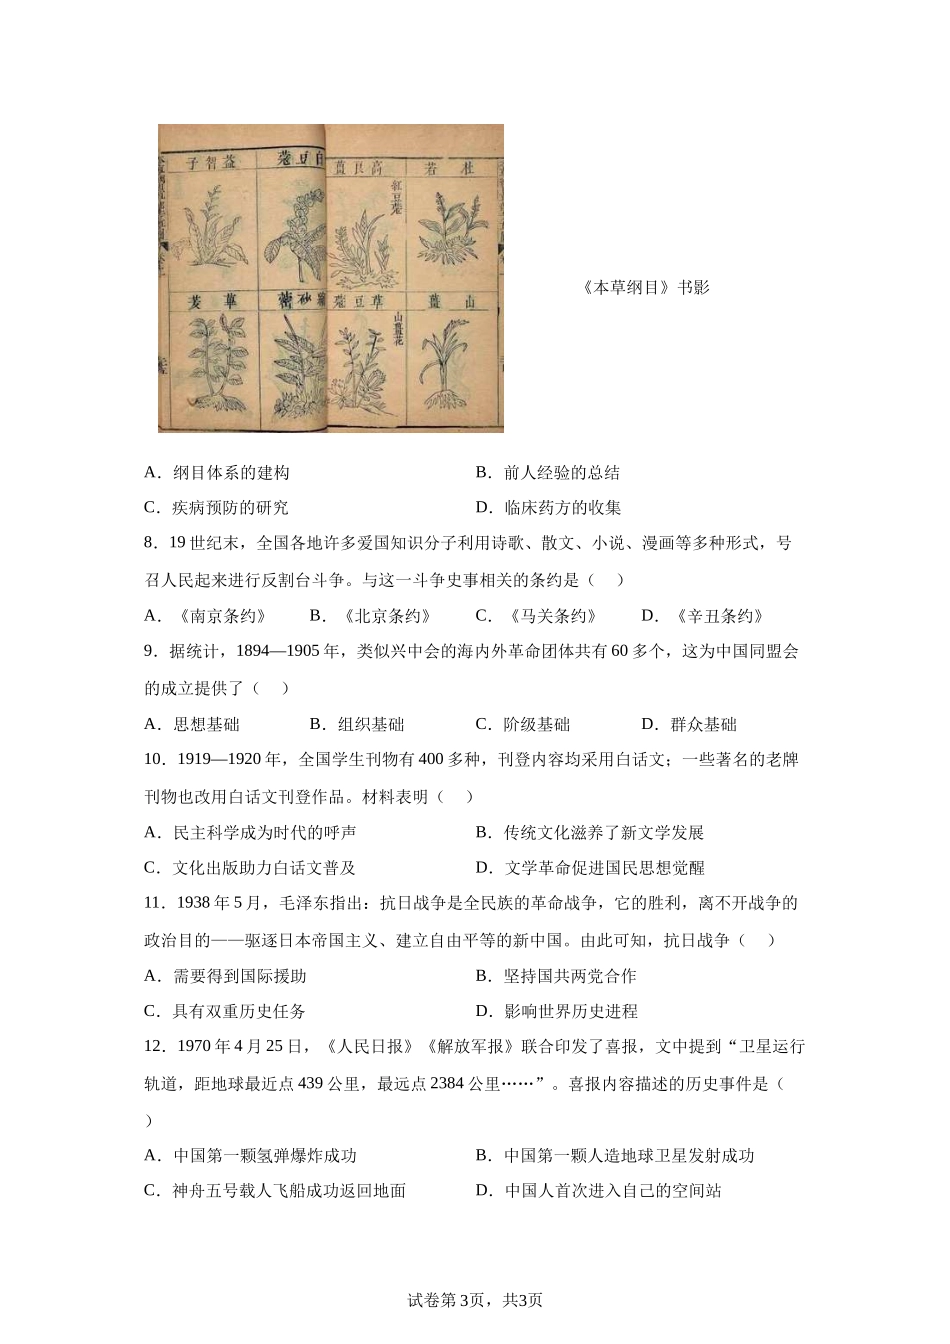 子智益
蔻豆白
薑良高
紅豆蔻
若杜
茇蓽
蔤砂縮
蔻豆草
山薑花
薑山
《本草纲目》书影
A．纲目体系的建构 B．前人经验的总结
C．疾病预防的研究 D．临床药方的收集
8．19 世纪末，全国各地许多爱国知识分子利用诗歌、散文、小说、漫画等多种形式，号
召人民起来进行反割台斗争。与这一斗争史事相关的条约是（ ）
A．《南京条约》 B．《北京条约》 C．《马关条约》 D．《辛丑条约》
9．据统计，1894—1905 年，类似兴中会的海内外革命团体共有 60 多个，这为中国同盟会
的成立提供了（ ）
A．思想基础 B．组织基础 C．阶级基础 D．群众基础
10．1919—1920 年，全国学生刊物有 400 多种，刊登内容均采用白话文；一些著名的老牌
刊物也改用白话文刊登作品。材料表明（ ）
A．民主科学成为时代的呼声 B．传统文化滋养了新文学发展
C．文化出版助力白话文普及 D．文学革命促进国民思想觉醒
11．1938 年 5 月，毛泽东指出：抗日战争是全民族的革命战争，它的胜利，离不开战争的
政治目的——驱逐日本帝国主义、建立自由平等的新中国。由此可知，抗日战争（ ）
A．需要得到国际援助 B．坚持国共两党合作
C．具有双重历史任务 D．影响世界历史进程
12．1970 年 4 月 25 日，《人民日报》《解放军报》联合印发了喜报，文中提到“卫星运行
轨道，距地球最近点 439 公里，最远点 2384 公里……”。喜报内容描述的历史事件是（
）
A．中国第一颗氢弹爆炸成功 B．中国第一颗人造地球卫星发射成功
C．神舟五号载人飞船成功返回地面 D．中国人首次进入自己的空间站
试卷第 3页，共3页